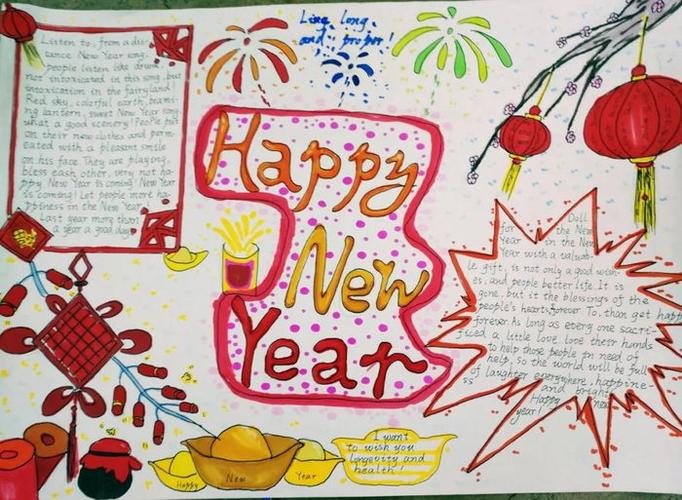 Listen to, from a dis-
tance New Year song,
people listen like drunk,
not intoxicated in this song, but
intoxication in the fairyland!
Red sky, colorful earth, beami-
ng lantern, sweet New Year song
what a good scenery! People put
on their new clothes and perm-
eated with a pleasant smile
on his face. They are playing,
bless each other, very not ha-
ppy New Year is coming! New Year
is coming! Let people more ha-
ppiness in the New Year
Last year more than
a year a good day!
Live long
and prosper!
Happy
New
Year
Doll
for the New
Year in the New
Year with a valuab-
le gift, is not only a good wish-
es, and people better life. It is
gone, but it the blessings of the
people's hearts, forever To. than get happ
forever. As long as every one sacri-
ficed a little love love their hands
to help those people in need of
help, so the world will be full
of laughter everywhere, happine-
ss and bright
Happy new
year!
Happy
New
Year
I want
to wish you
longevity and
health!